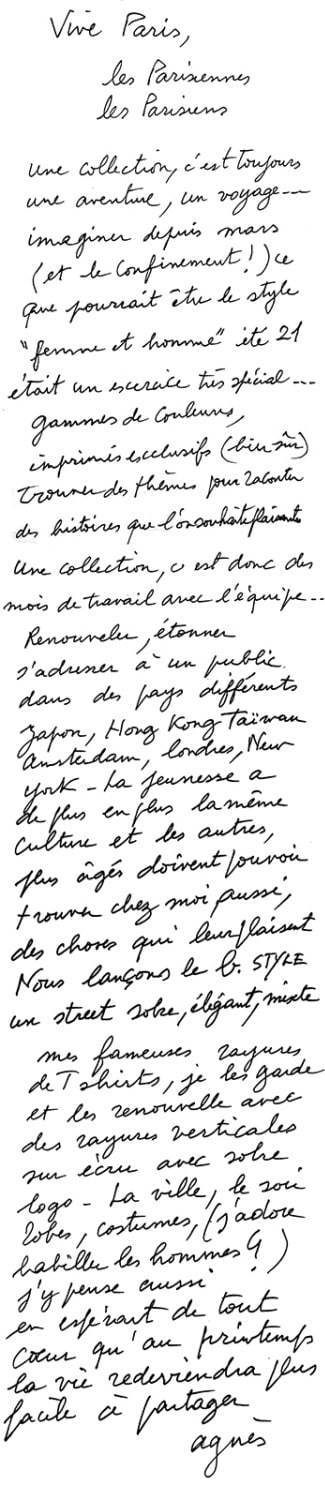 Vive Paris,
les Parisiennes
les Parisiens
Une collection, c'est toujours
une aventure, un voyage---
imaginer depuis mars
(et le Confinement!) ce
que pourrait être le style
"femme et homme" été 21
était un exercice très spécial---
gammes de Couleurs,
imprimés exclusifs (bien sûr)
trouver des thèmes pour raconter
des histoires que l'on souhaite plaisantes
Une collection, c'est donc des
mois de travail avec l'équipe--
Renouveler, étonner
s'adresser à un public
dans des pays différents
Japon, Hong Kong Taïwan
Amsterdam, londres, New
york - La jeunesse a
de plus en plus la même
Culture et les autres,
plus âgés doivent pouvoir
trouver chez moi aussi,
des choses qui leur plaisent
Nous lançons le b. STYLE
un street sobre, élégant, mixte
mes fameuses rayures
de T shirts, je les garde
et les renouvelle avec
des rayures verticales
sur écru avec sobre
logo - La ville, le soir
robes, costumes, (j'adore
habiller les hommes !)
j'y pense aussi
en espérant de tout
Cœur qu'au printemps
la vie redeviendra plus
facile à partager
agnès